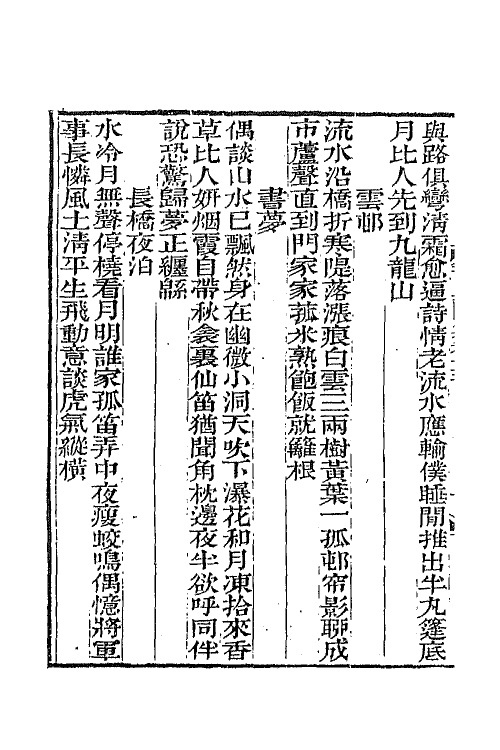 與路俱彎淸霜愈逼詩情老流水應輸僕睡閒推出半丸篷底
月比人先到九龍山
雲邨
流水沿橋折寒隄落漲痕白雲三兩樹黃葉一孤邨帘影聊成
市蘆聲直到門家家菰米熟飽飯就籬根
書夢
偶談山水已飄然身在幽微小洞天吹下瀑花和月凍拾來香
草比人妍烟霞自帶秋衾裏仙笛猶聞角枕邊夜半欲呼同伴
說恐驚歸夢正纏緜
長橋夜泊
水冷月無聲停橈看月明誰家孤笛弄中夜瘦蛟鳴偶憶將軍
事長憐風土淸平生飛動意談虎氣縱橫